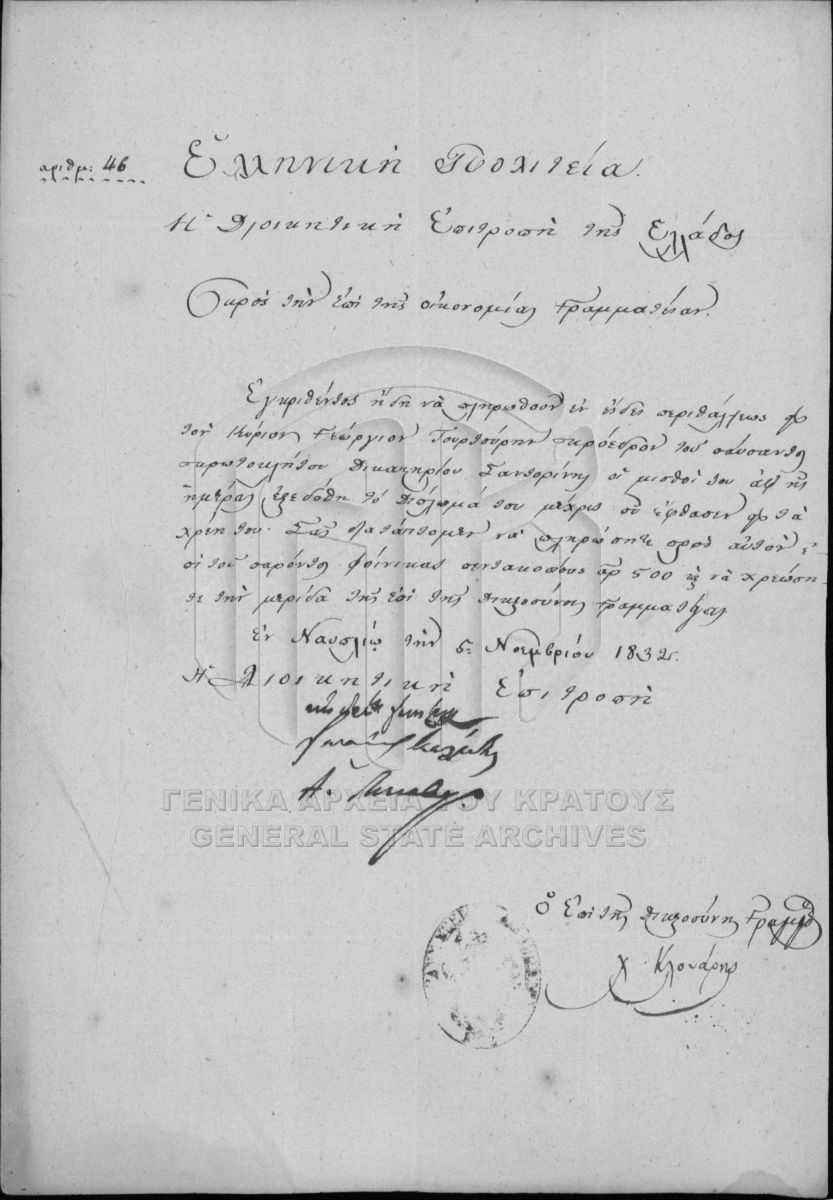 ἀριθμ: 46
Ἑλληνική Πολιτεία.
Ἡ Διοικητική Ἐπιτροπή τῆς Ἑλλάδος
Πρός τήν ἐπί τῆς Οἰκονομίας Γραμματείαν.
Ἐγκριθέντος ἤδη νά πληρωθοῦν ἐν εἴδει περιθάλψεως
τόν Κύριον Γεώργιον πρόεδρον τοῦ παύσαντος
πρωτοκλήτου Δικαστηρίου Σαντορίνης οἱ μισθοί του ἀφ' ἧς
ἡμέρας ἐξεδόθη τό δίπλωμά του μέχρις οὗ ἔφθασεν τά
χρέη του. Σᾶς διατάττομεν νά πληρώσητε πρός αὐτόν ἐ-
πί τοῦ παρόντος φοίνικας πεντακοσίους ἀρ 500 καί νά χρεώση-
τε τήν μερίδα τῆς ἐπί τῆς Δικαιοσύνης Γραμματείας
Ἐν Ναυπλίῳ τήν 5 Νοεμβρίου 1832.
Ἡ Διοικητική Ἐπιτροπή
ΓΕΝΙΚΑ ΑΡΧΕΙΑ ΤΟΥ ΚΡΑΤΟΥΣ
GENERAL STATE ARCHIVES
Ὁ ἐπί τῆς Δικαιοσύνης Γραμμ
Χ Κλονάρης